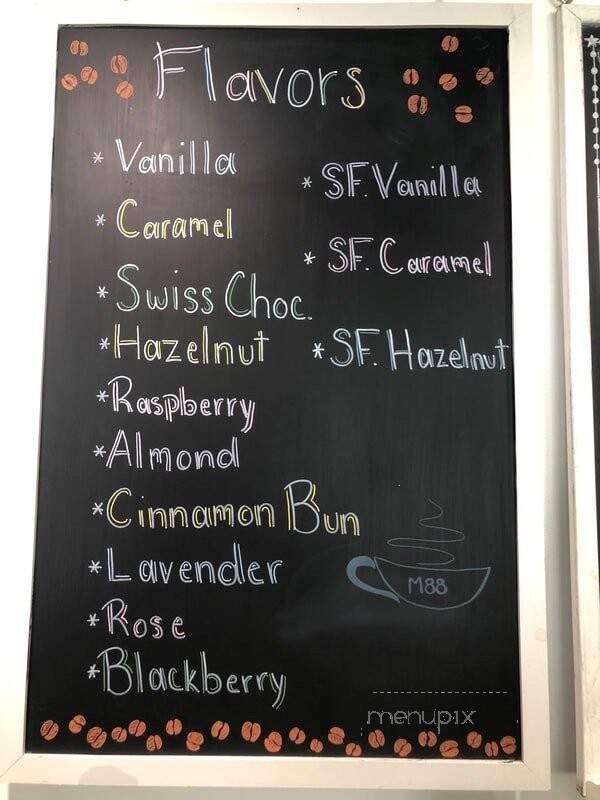 Flavors
* Vanilla
* Caramel
* Swiss Choc.
* Hazelnut
* Raspberry
* Almond
* Cinnamon Bun
* Lavender
* Rose
* Blackberry
* SF. Vanilla
* SF. Caramel
* SF. Hazelnut
M88
menupix